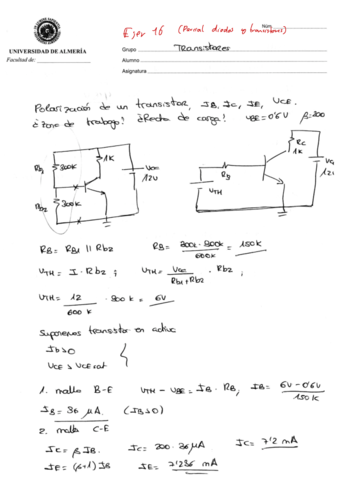 Ejer 16 (Parcial diodos y transistores)
Núm.
UNIVERSIDAD DE ALMERÍA
Grupo Transistores
Facultad de:
Alumno
Asignatura
Polarización de un transistor, IB, IC, IE, VCE.
¿Zona de trabajo? ¿Recta de carga? VBE = 0'6V β=200
RB1 300k
1K
VCC
12V
RB2 300k
RC
1K
RB
VTH
RB = RB1 || RB2
RB = 300k · 300k / 600k = 150k
VTH = I · RB2 ; VTH = VCC / RB1+RB2 · RB2 ;
VTH = 12 / 600 k · 300 k = 6V
Suponemos transistor en activa
Ib>0
VCE > VCEsat
1. malla B-E VTH - VBE = IB · RB, IB = 6V-0'6V / 150 k
IB = 36 μA. (IB>0)
2. malla C-E
IC = β IB. IC = 200 · 36μA IC = 7'2 mA
IE = (β+1) IB IE = 7'236 mA